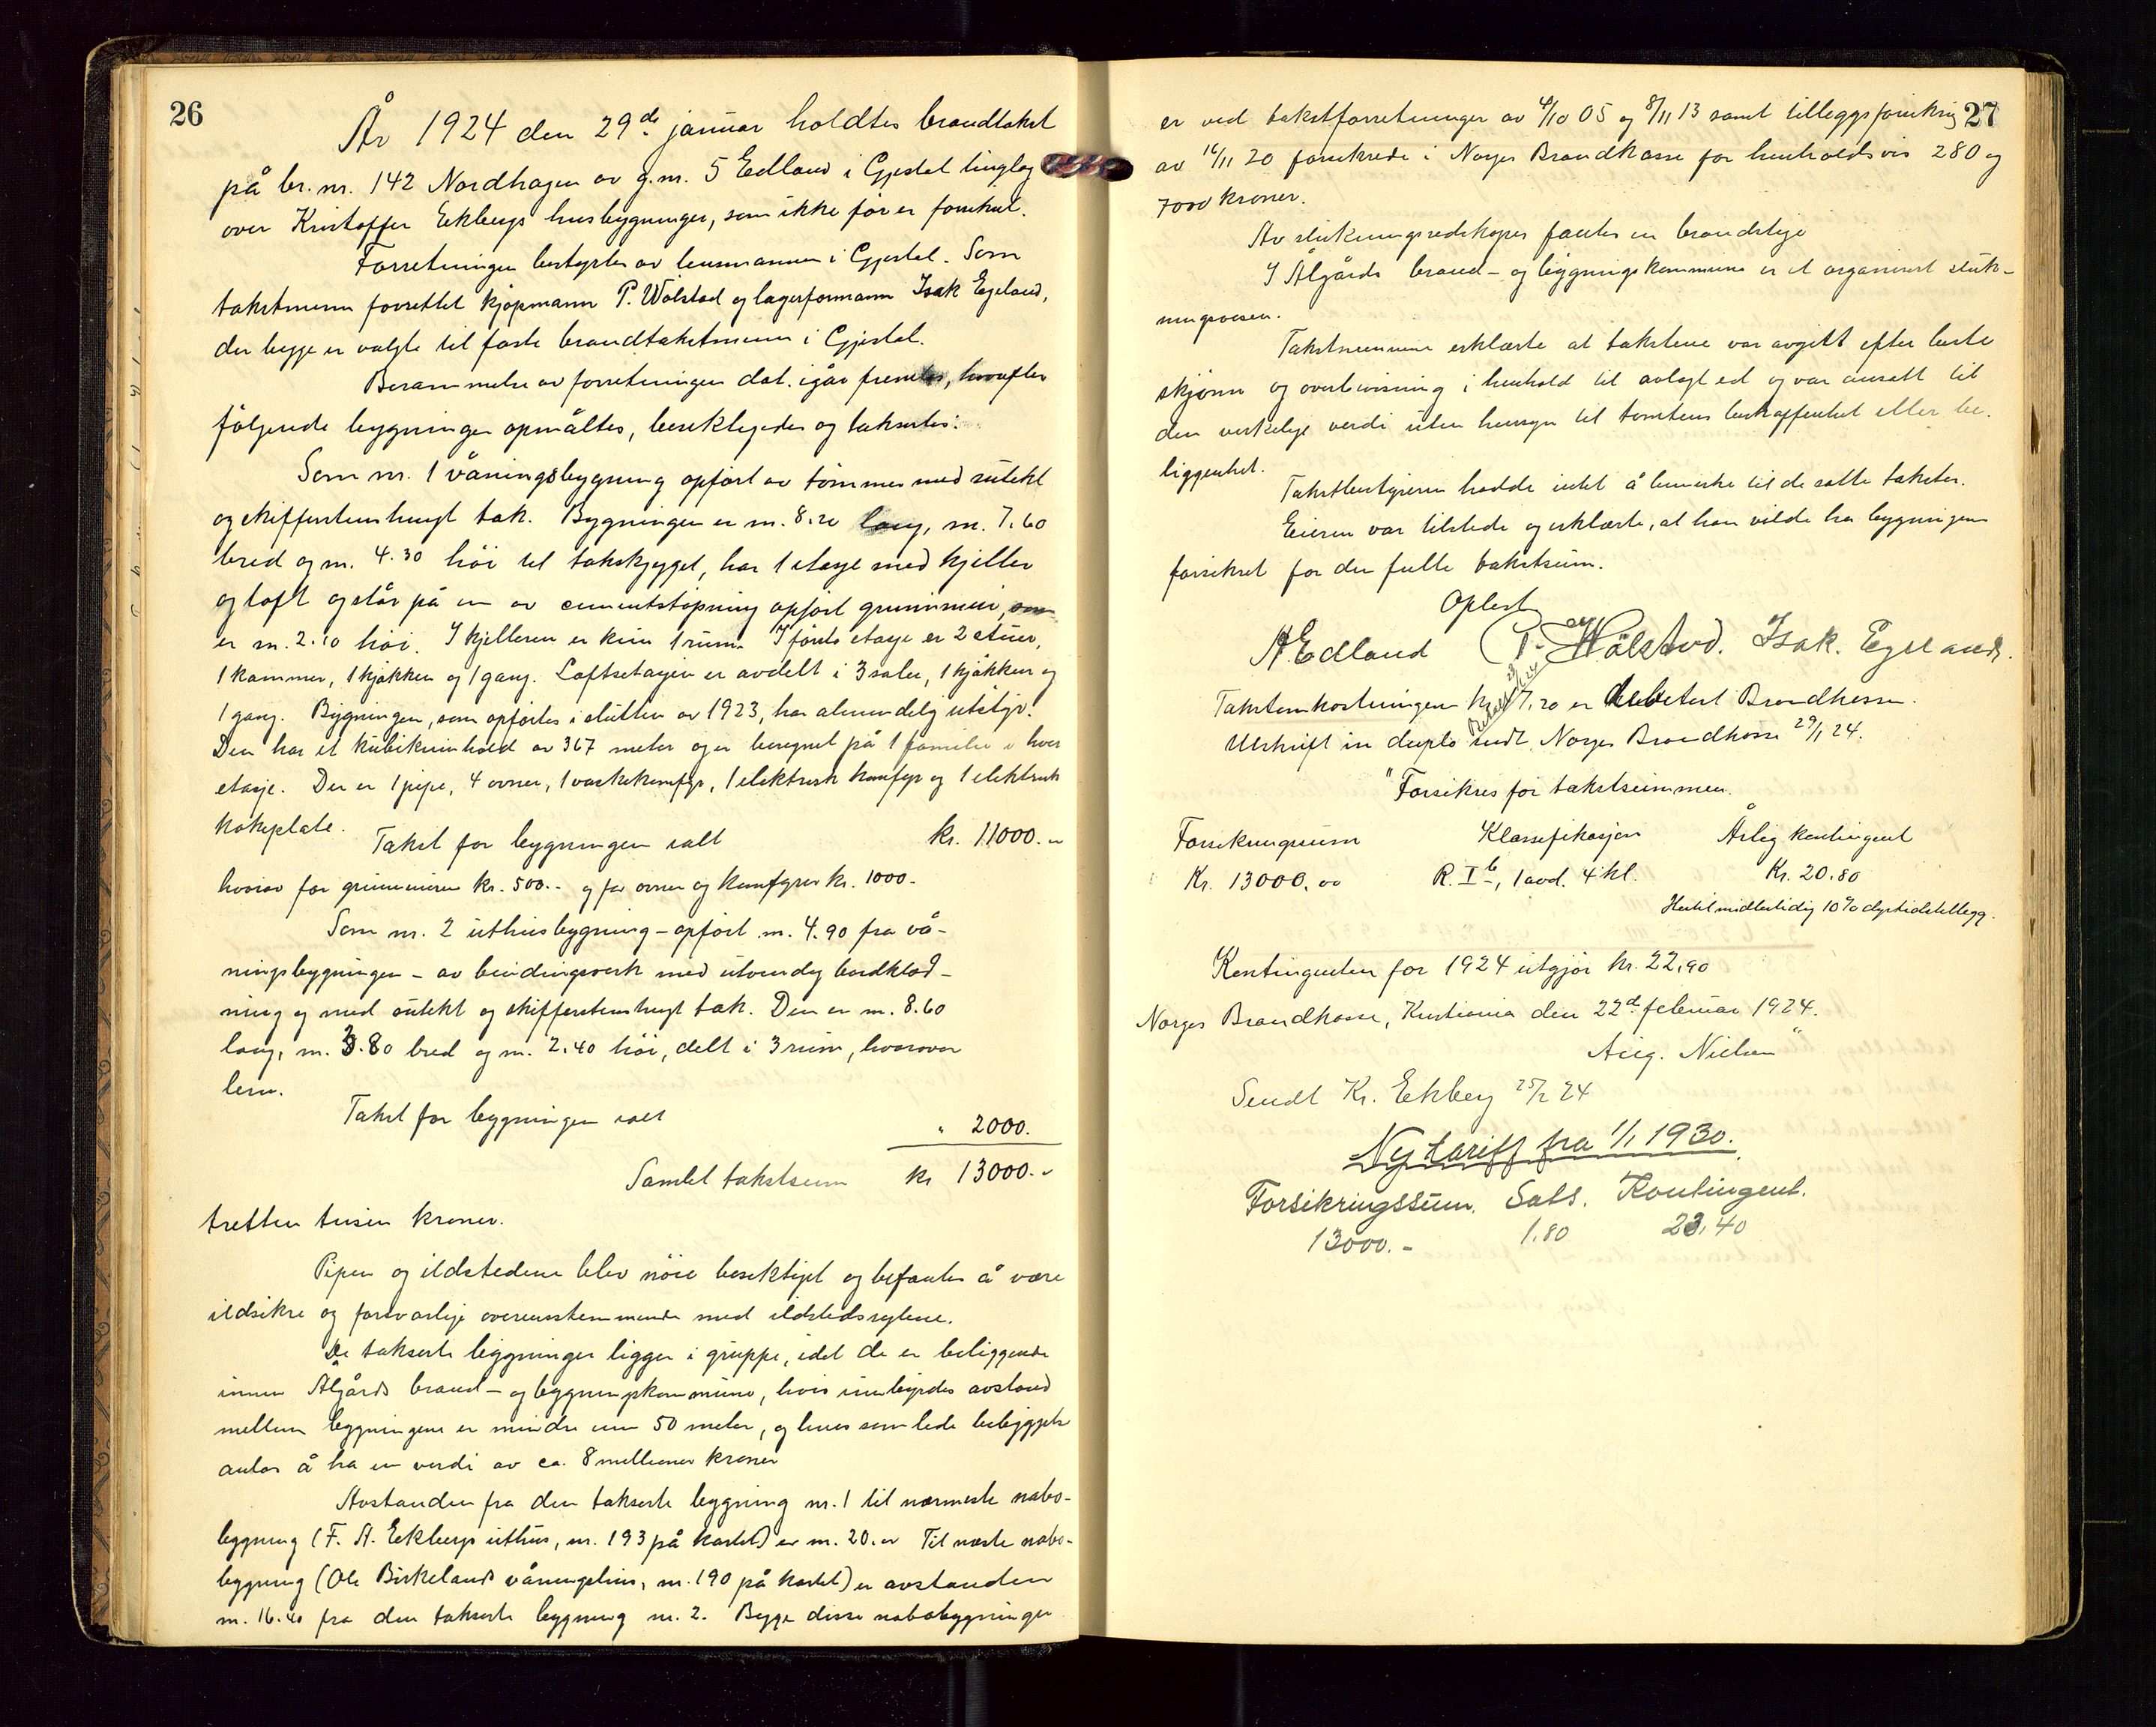 26
År 1924 den 29de januar holdtes brandtakst
på br. nr. 142 Nordhagen av g.nr. 5 Edland i Gjestal tinglag
over Kristoffer Eekbergs husbygninger, som ikke før er forsikret.
Forretningen bestyrtes av lensmannen i Gjestal. Som
takstmenn forrettet kjøpmann P. Wølstad og lagerformann Isak Egeland,
der begge er valgte til faste brandtakstmenn i Gjestal.
Berammelse av forretningen dat. igår fremla, hvorefter
følgende bygninger opmåltes, besiktigedes og takseres:
Som nr. 1 våningsbygning opført av tømmer med sutekt
og skifferstenhengt tak. Bygningen er m. 8.20 lang, m. 7.60
bred og m. 4.30 høi til takskjegget, har 1 etage med kjeller
og loft og står på en av cementstøpning opført grunnmur, som
er m. 2.10 høi. I kjelleren er kun 1 rum. I første etage er 2 stuer,
1 kammer, 1 kjøkken og 1 gang. Loftsetagen er avdelt i 3 saler, 1 kjøkken og
1 gang. Bygningen, som opførtes i slutten av 1923, har almindelig utstyr.
Den har et kubikinnhold av 367 meter og er beregnet på 1 familie i hver
etasje. Der er 1 pipe, 4 ovner, 1 vaskekomfyr, 1 elektrisk komfyr og 1 elektrisk
kokeplate.
Takst for bygningen ialt kr. 11000.-
hvorav for grunnmuren kr. 500.- og for ovner og komfyrer kr. 1000.-
Som nr. 2 uthusbygning - opført m. 4.90 fra vå-
ningsbygningen - av bindingsverk med utvendig bordklæd-
ning og med sutekt og skifferstenhengt tak. Den er m. 8.60
lang, m. 3.80 bred og m. 2.40 høi, delt i 3 rum, hvorover
lem.
Takst for bygningen ialt " 2000.
Samlet takstsum kr 13000.-
tretten tusen kroner.
Pipen og ildstedene blev nøie besiktiget og befantes å være
ildsikre og forsvarlige overensstemmende med ildstedsreglene.
De takserte bygninger ligger i gruppe, idet de er beliggende
innen Ålgårds brand- og bygningskommune, hvis innbyrdes avstand
mellem bygningene er mindre enn 50 meter, og hvis samlede bebyggelse
antas å ha en verdi av ca. 8 millioner kroner
Avstanden fra den takserte bygning nr. 1 til nærmeste nabo-
bygning (F. A. Eekbergs uthus, nr. 193 på kartet) er m. 20.00 Til næste nabo-
bygning (Ole Birkelands våningshus, nr. 190 på kartet) er avstanden
m. 16.40 fra den takserte bygning nr. 2. Begge disse nabobygninger
27
er ved takstforretninger av 4/10 05 og 8/11 13 samt tilleggsforsikring
av 16/11 20 forsikrede i Norges Brandkasse for henholdsvis 280 og
7000 kroner.
Av slukningsredskaper fantes en brandstige
I Ålgårds brand- og bygningskommune er et organisert sluk-
ningsvesen.
Takstmennene erklærte at takstene var avgitt efter beste
skjønn og overbevisning i henhold til avlagt ed og var ansatt til
den virkelige verdi uten hensyn til tomtens beskaffenhet eller be-
liggenhet.
Takstbestyreren hadde intet å bemerke til de satte takster.
Eieren var tilstede og erklærte, at han vilde ha bygningene
forsikret for den fulle takstsum.
Oplest
A Edland P. Wølstad. Isak. Egeland.
Takstomkostningen kr 17.20 er debitert Brandkassen.
Utskrift in duplo sendt Norges Brandkasse 29/1 24.
"Forsikres for takstsummen.
Forsikringssum Klassifikasjon Årlig kontingent
Kr. 13000.00 R. Ib, 1 avd. 4 kl. Kr. 20.80
Hertil midlertidig 10% dyrtidstillegg.
Kontingenten for 1924 utgjør kr. 22.90
Norges Brandkasse, Kristiania den 22d februar 1924.
Aug. Nielsen"
Sendt Kr. Ekberg 25/2 24
Ny tariff fra 1/1 1930.
Forsikringssum. Sats. Kontingent.
13000.- 1.80 23.40